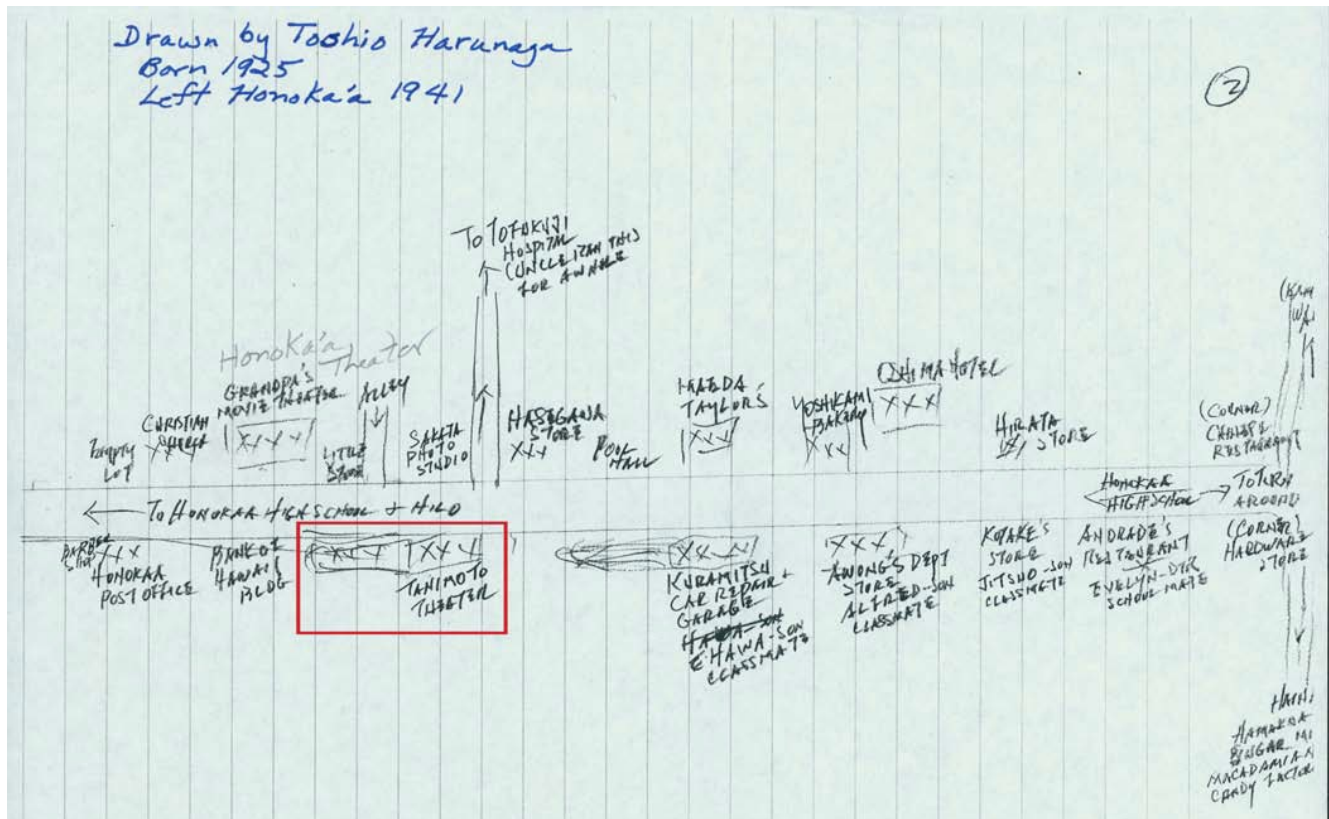 Drawn by Toshio Harunaga
Born 1925
Left Honoka'a 1941
2
To TOFUKUJI
HOSPITAL
(UNCLE
THIS
FOR
Honoka'a Theater
GRANDPA'S
MOVIE THEATER
ALLEY
CHRISTIAN
EMPTY
LOT
LITTLE
STORE
SAKATA
PHOTO
STUDIO
HASEGAWA
STORE
XXX
POOL
HALL
MAEDA
TAYLOR'S
XXX
YOSHIKAMI
BAKERY
XXX
OSHIMA HOTEL
XXX
HIRATA
STORE
(CORNER)
CHINESE
RESTAURANT
XXXX
← TO HONOKAA HIGH SCHOOL & HILO
HONOKAA
HIGH SCHOOL
→ TO TURN
AROUND
BARBER
SHOP
XXX
HONOKAA
POST OFFICE
BANK OF
HAWAII
BLDG
XXX
XXX
TANIMOTO
THEATER
XXX
KURAMITSU
CAR REPAIR &
GARAGE
EHAWA-SON
CLASSMATE
XXX
AWONG'S DEPT
STORE
ALFRED-SON
CLASSMATE
KOTAKE'S
STORE
JITSUO-SON
CLASSMATE
ANDRADE'S
RESTAURANT
X
EVELYN-DTR
SCHOOL MATE
(CORNER)
HARDWARE
STORE
HAMAKUA
SUGAR MI
MACADAMIA N
CANDY FACTOR